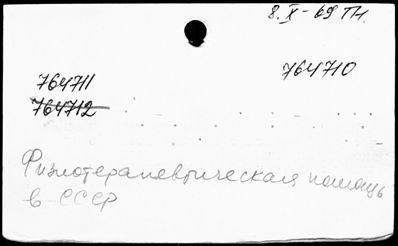 8.X-69 ТН.
764710
764711
764712
Физиотерапевтическая помощь
в СССР